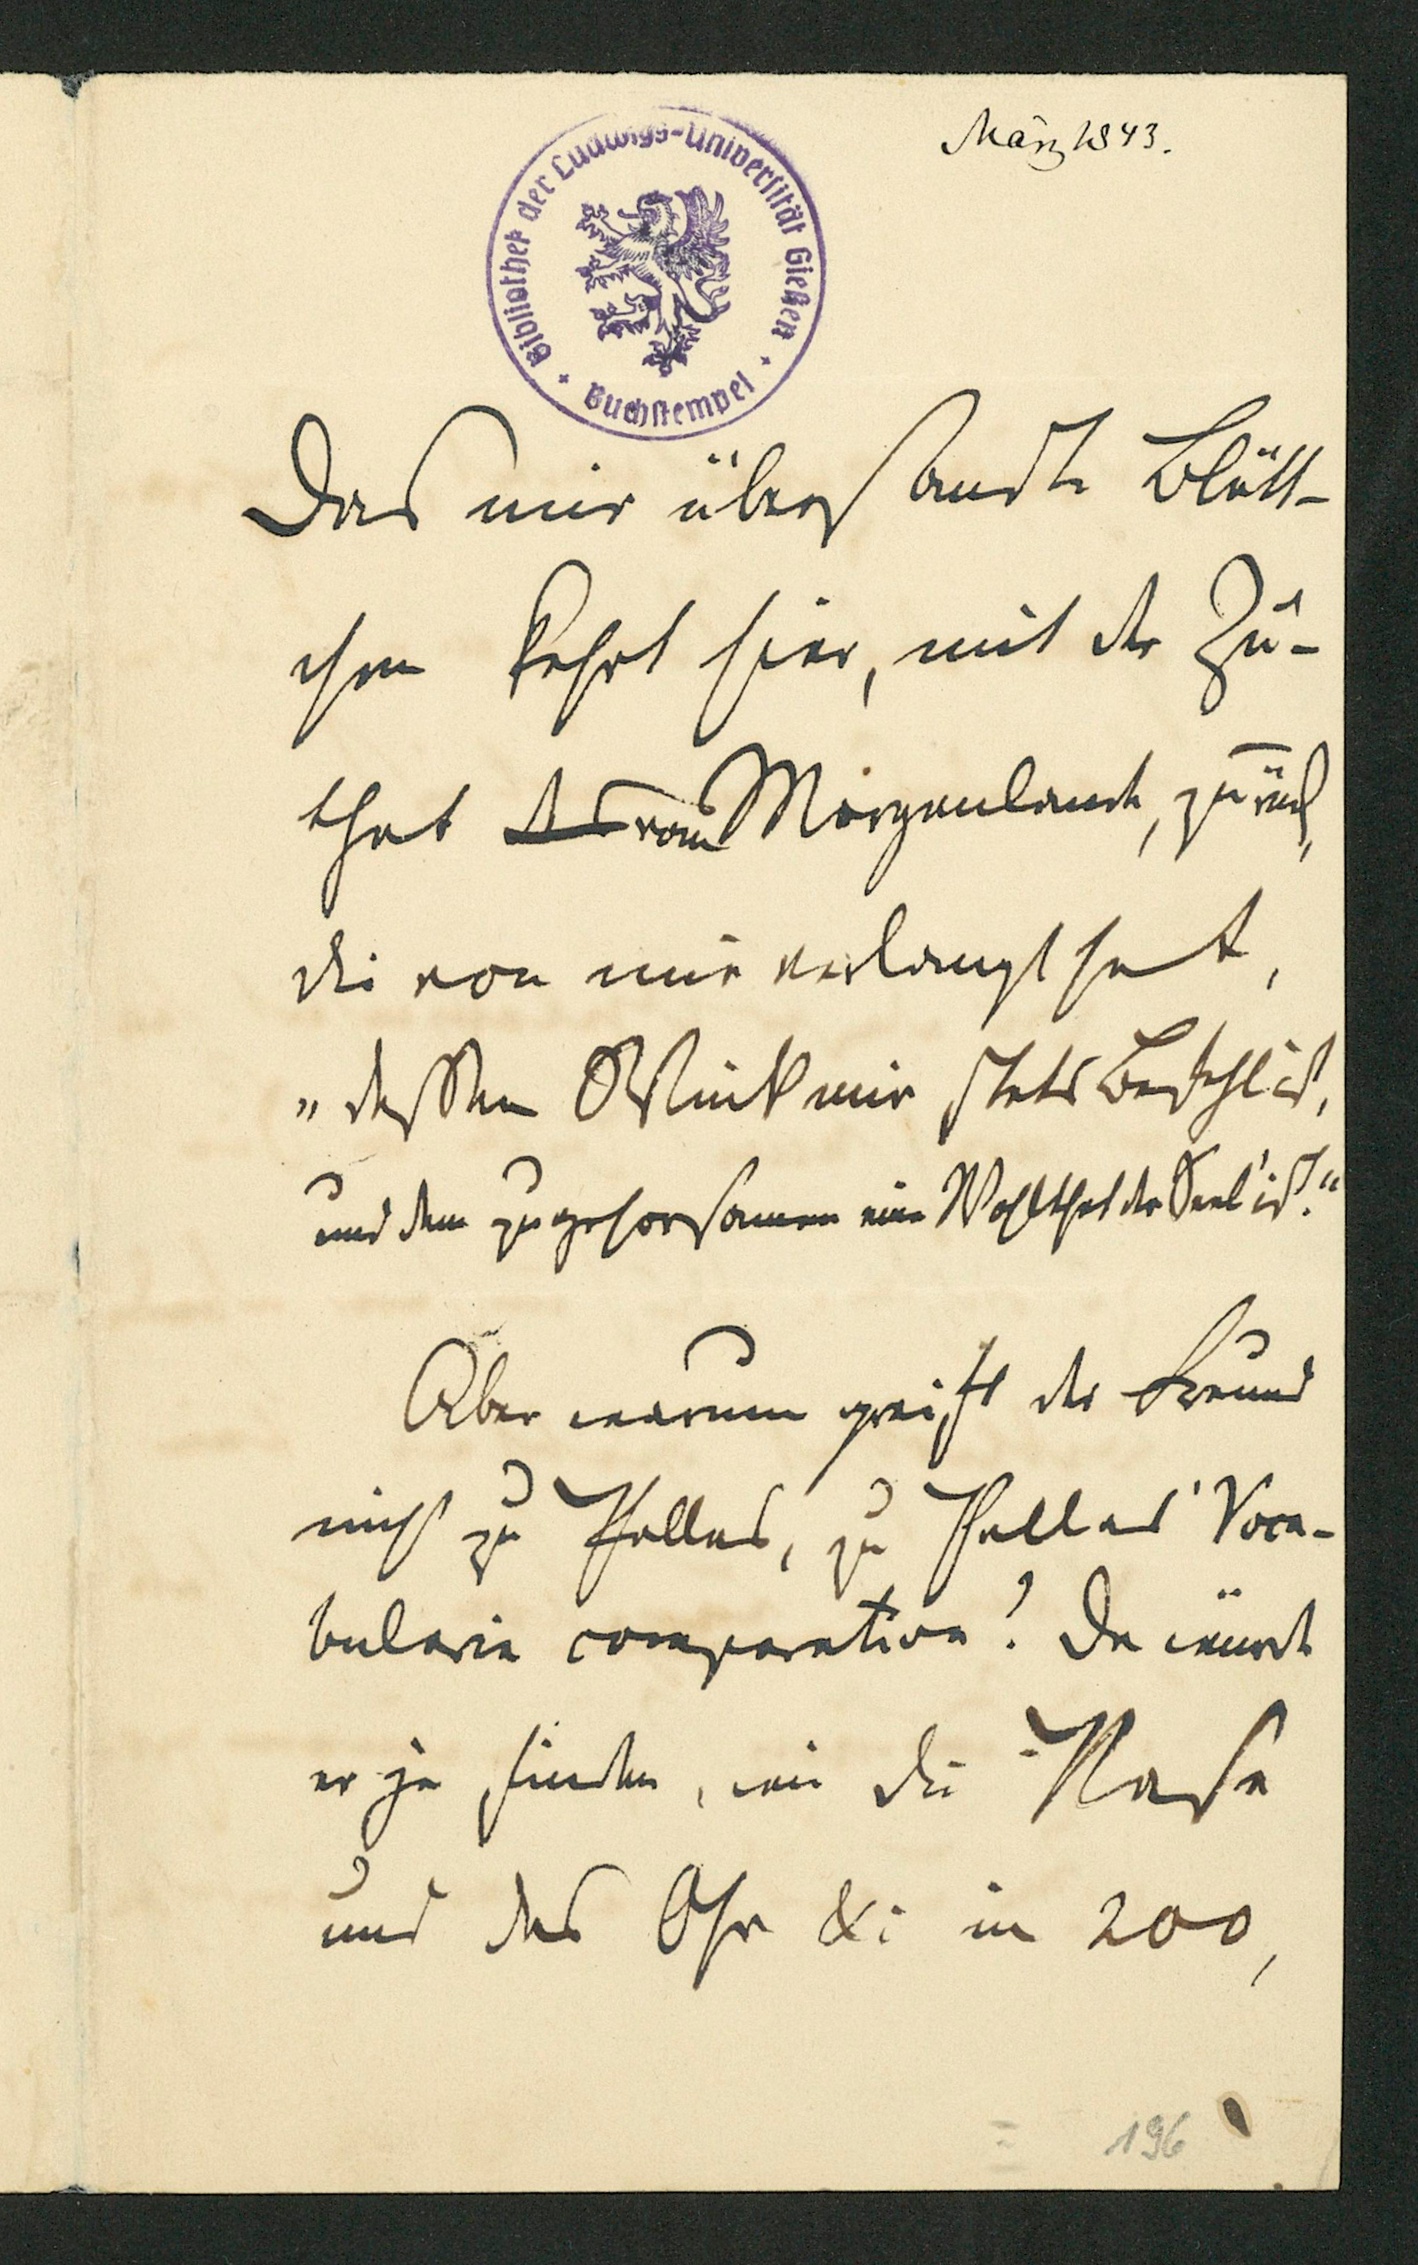 März 1843.
Bibliothek der Ludwigs-Universität Gießen
Buchstempel
Das mir übersandte Blätt-
chen kehrt hier, mit der Zu-
that vom Morgenlande, zurück,
die von mir verlangt hat,
„dessen Wink mir stets Befehl ist,
und dem zu gehorsamen eine Wohlthat der Seel' ist."
Aber warum greift der Freund
nicht zu Pallas, zu Pallas' Voca-
bularia comparativa! Da würde
er ja finden, wie die Nase
und das Ohr &c in 200,
196